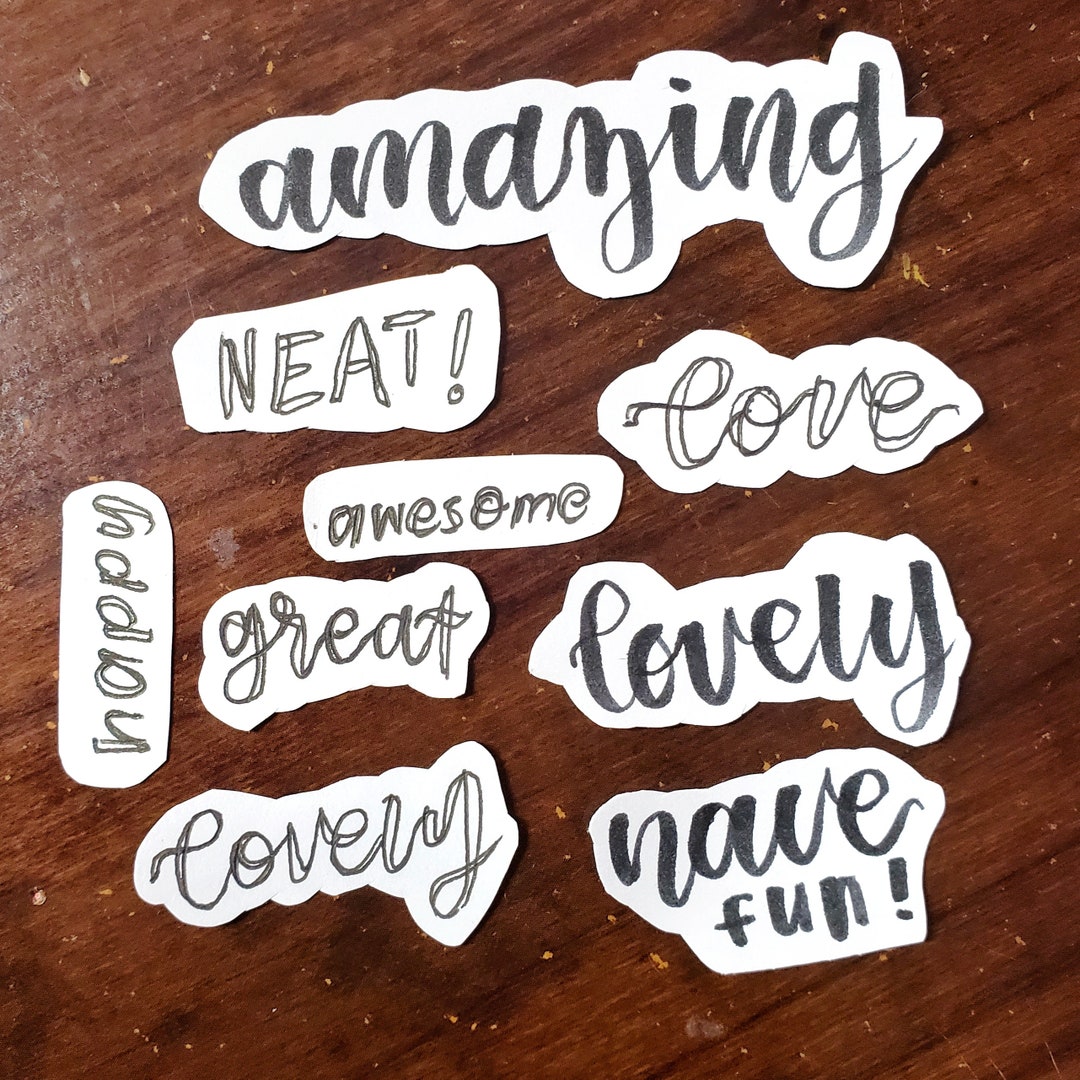 amazing
NEAT!
love
awesome
happy
great
lovely
lovely
nave
fun!